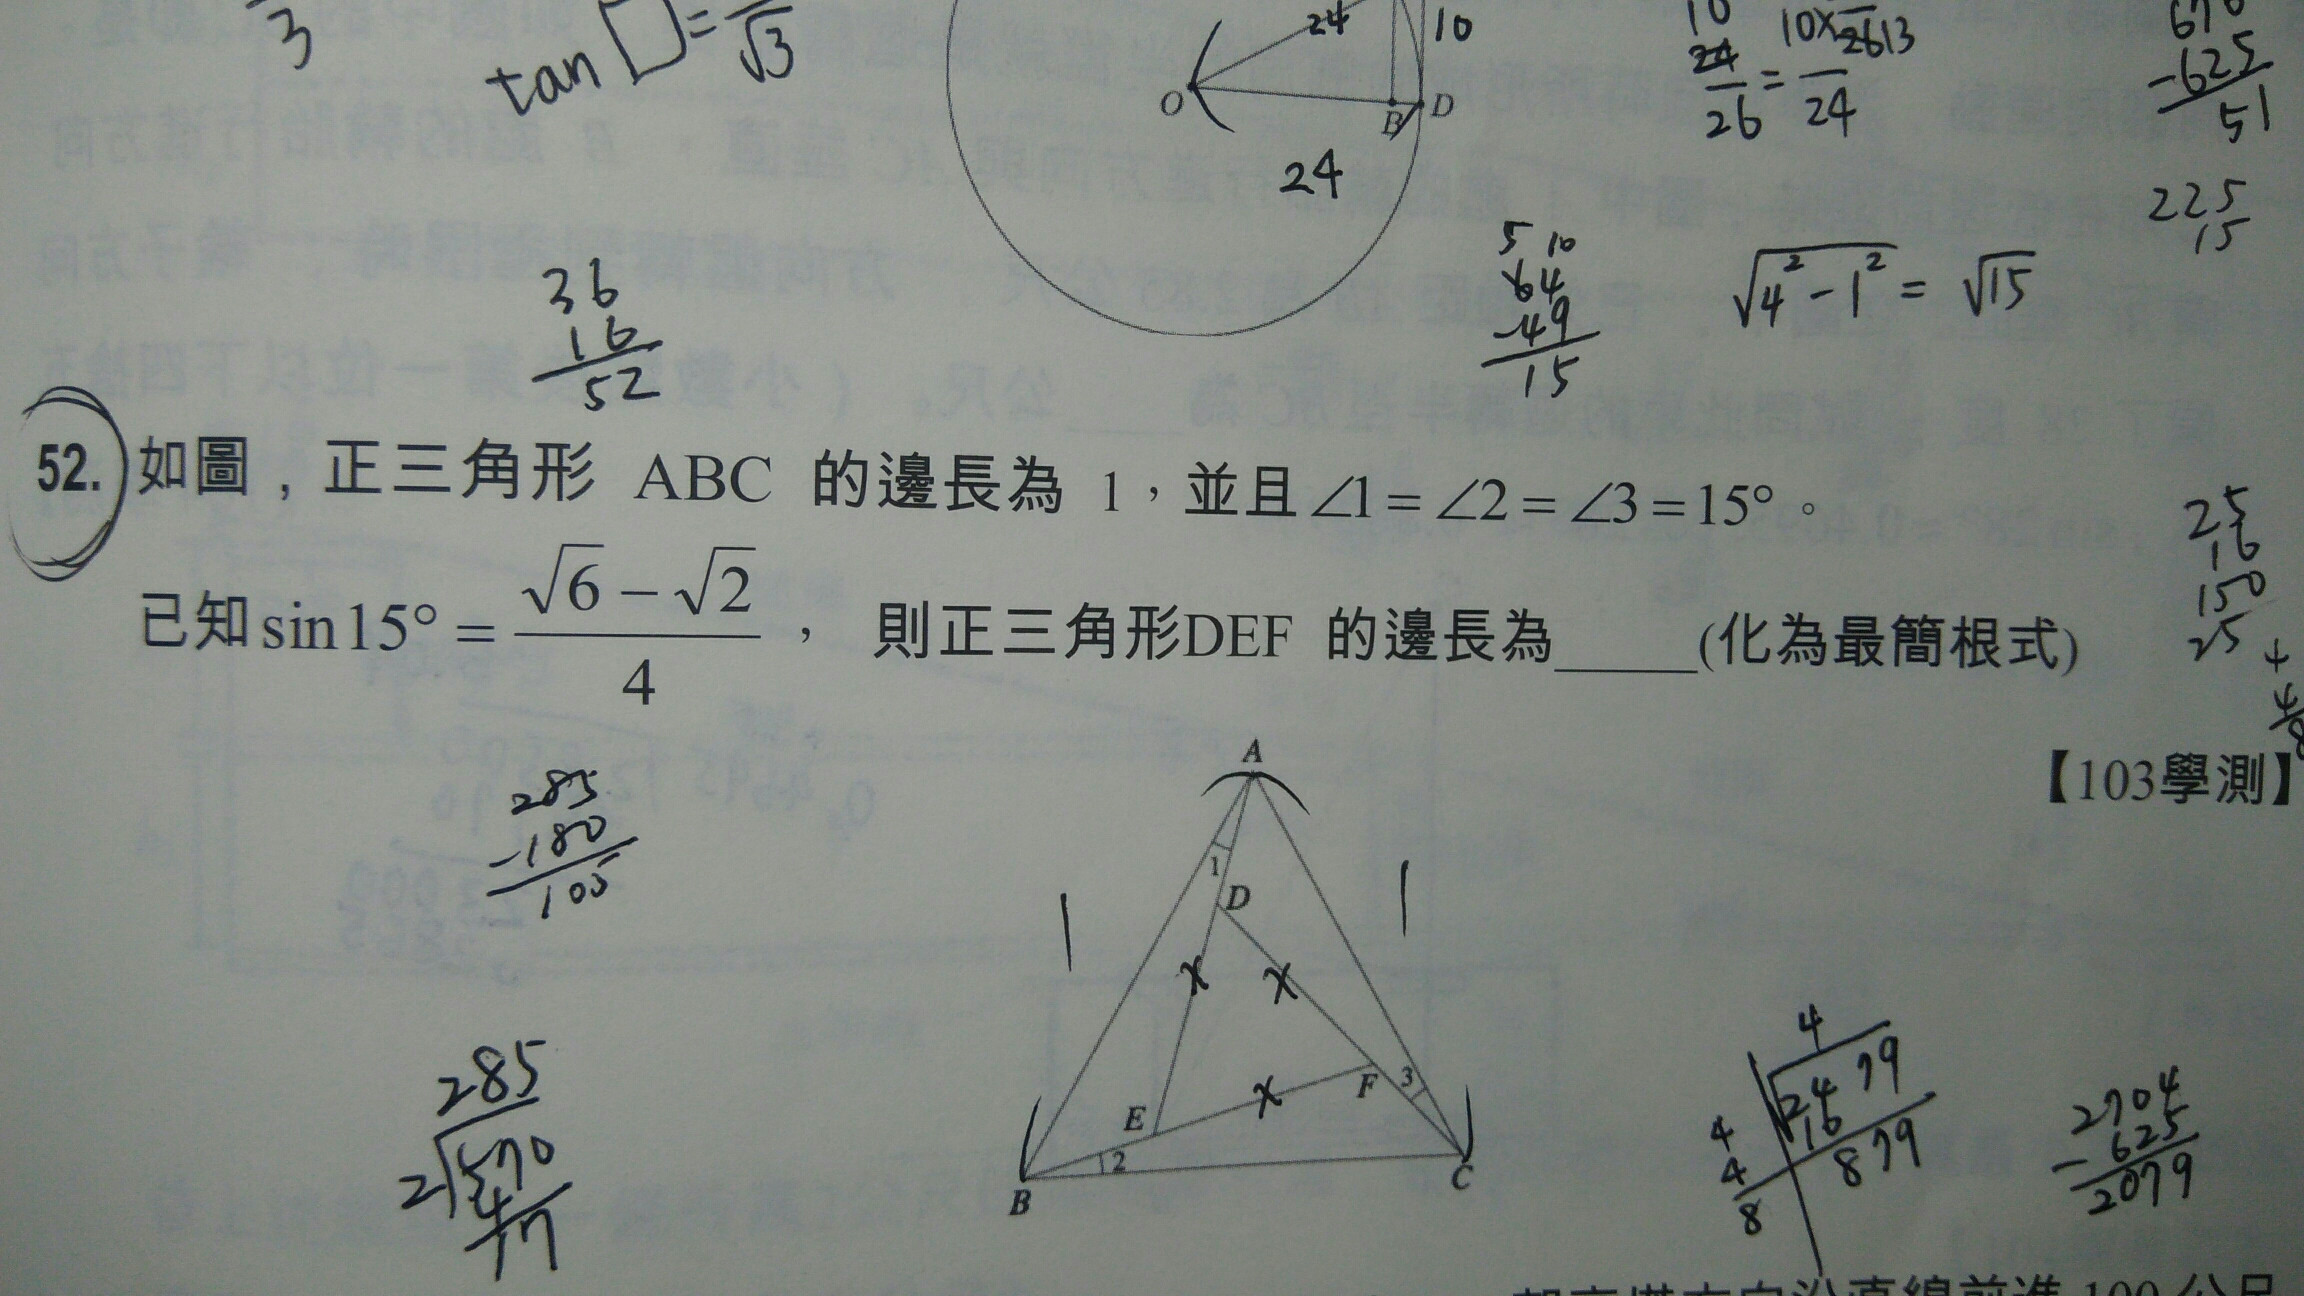 3
tan □ = / √3
24
10
O
B
D
24
10
24
26
=
10×2613
24
-625
51
225
15
36
16
52
5 10
64
-49
15
√4²-1² = √15
52. 如圖，正三角形 ABC 的邊長為 1，並且∠1=∠2=∠3=15°。
已知sin15°=(√6-√2)/4， 則正三角形DEF 的邊長為_____(化為最簡根式)
25
16
150
25
+
【103學測】
285
-180
105
A
1
D
1
1
x
x
x
E
F
3
2
B
C
285
2 570
4
17
4
2479
4 16
4 879
8
2704
-625
2079
100 公尺